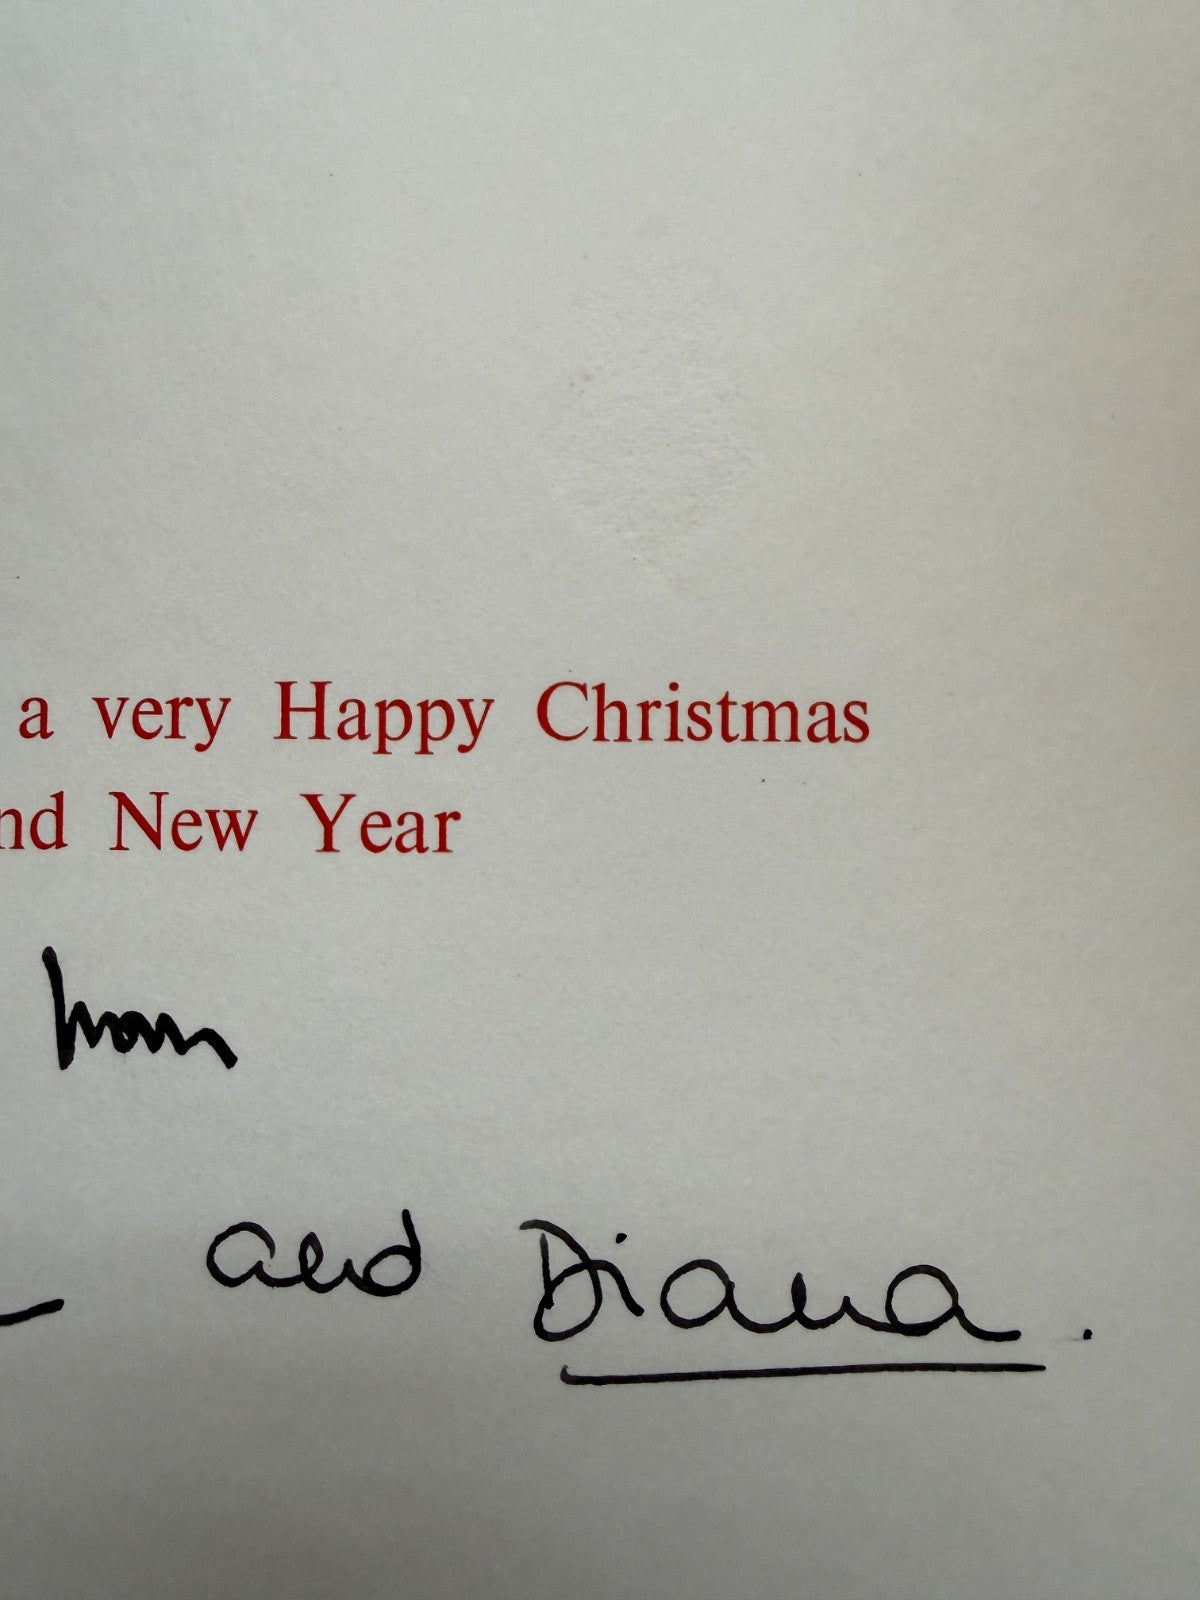 a very Happy Christmas
nd New Year
from
and Diana.